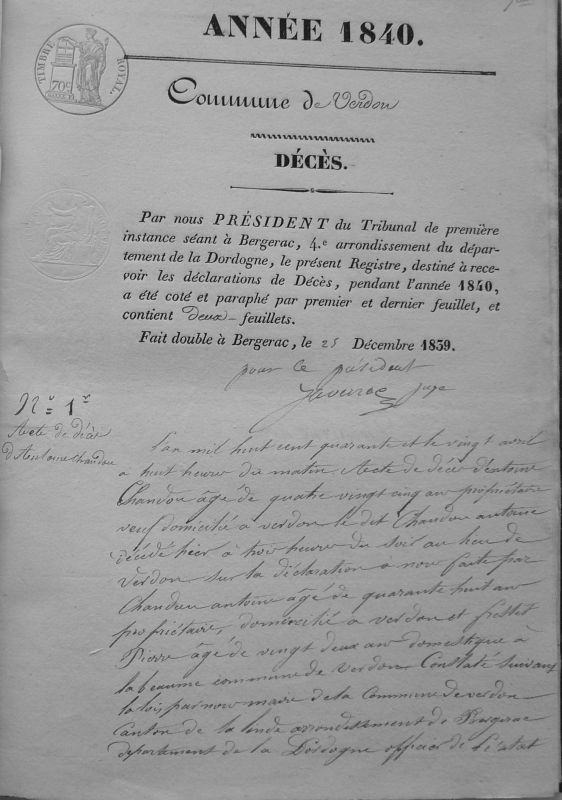 ANNÉE 1840.
TIMBRE ROYAL.
70c
Commune de Verdon
DÉCÈS.
Par nous PRÉSIDENT du Tribunal de première
instance séant à Bergerac, 4.e arrondissement du dépar-
tement de la Dordogne, le présent Registre, destiné à rece-
voir les déclarations de Décès, pendant l'année 1840,
a été coté et paraphé par premier et dernier feuillet, et
contient deux feuillets.
Fait double à Bergerac, le 25 Décembre 1839.
pour le président
juge
No 1er
Acte de décès
d'Antoine Chandou
l'an mil huit cent quarante et le vingt avril
a huit heures du matin, Acte de décès d'antoine
Chandou âgé de quatre vingt cinq ans propriétaire
veuf domicilié a verdon le dit Chandou antoine
décédé hier à trois heures du soir au lieu de
verdon sur la déclaration a nous faite par
Chandou antoine âgé de quarante huit ans
propriétaire, domicilié a verdon et
Pierre âgé de vingt deux ans domestique à
labeaume commune de verdon. Constaté suivant
la lois par nous maire de la Commune de verdon
Canton de la linde arrondissement de Bergerac
departement de la Dordogne officier de l'état